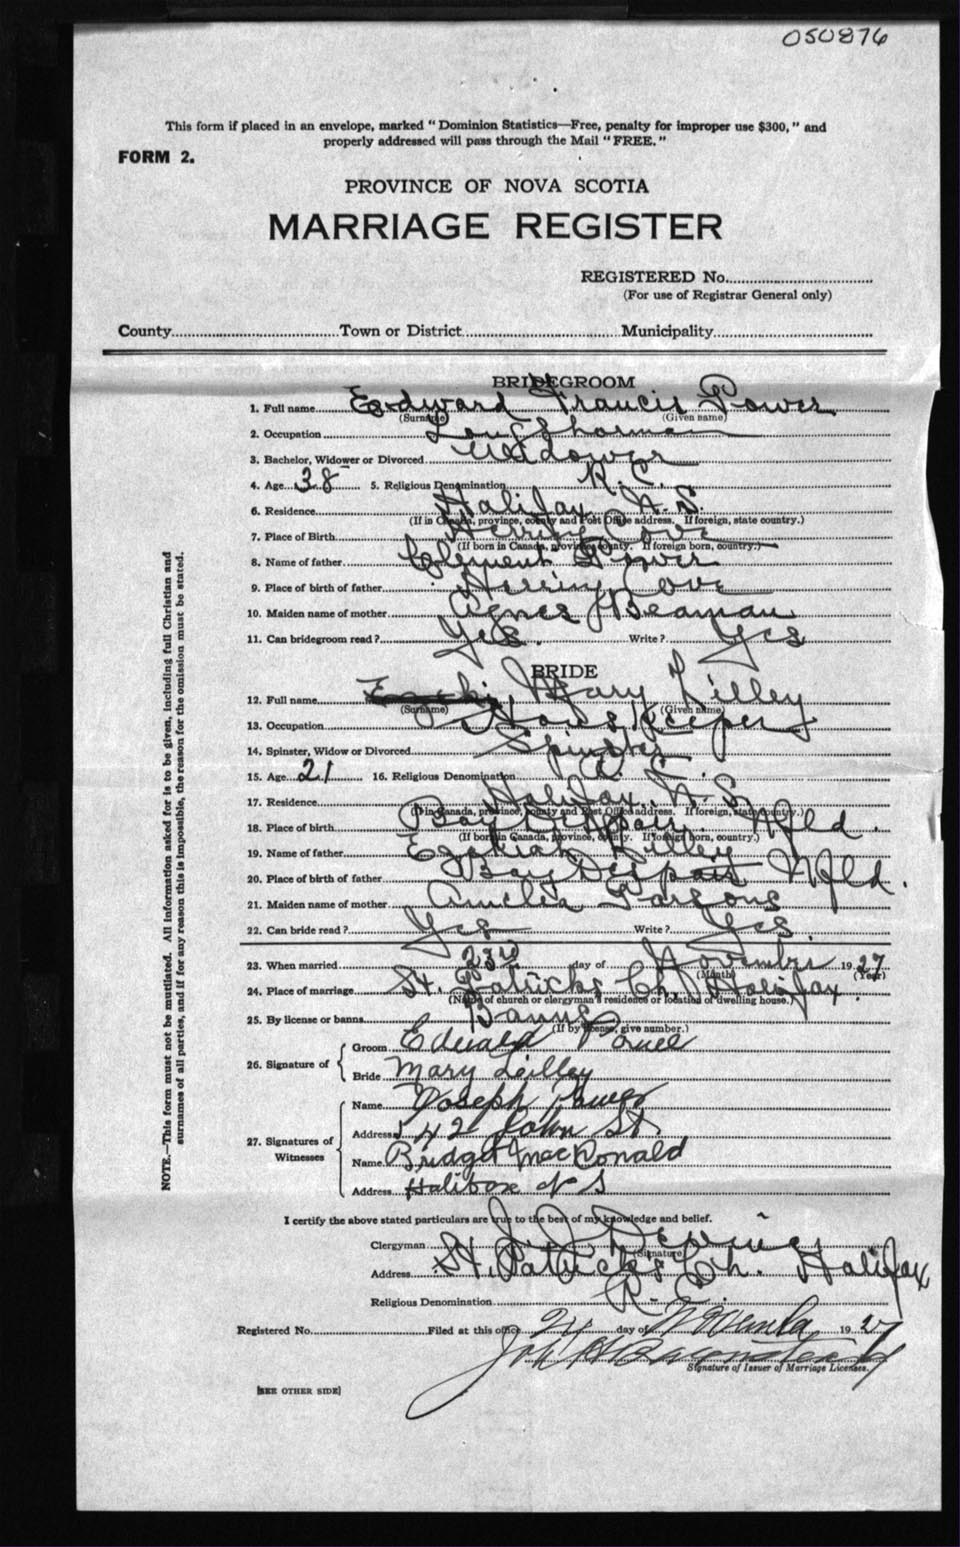 050876
This form if placed in an envelope, marked "Dominion Statistics—Free, penalty for improper use $300," and
properly addressed will pass through the Mail "FREE."
FORM 2.
PROVINCE OF NOVA SCOTIA
MARRIAGE REGISTER
REGISTERED No.
(For use of Registrar General only)
County Town or District Municipality
BRIDEGROOM
1. Full name Edward Francis Power
(Surname) (Given name)
2. Occupation Longshorman
3. Bachelor, Widower or Divorced Widower
4. Age 38 5. Religious Denomination R. C.
6. Residence Halifax N. S.
(If in Canada, province, county and Post Office address. If foreign, state country.)
7. Place of Birth Herring Cove
(If born in Canada, province, county. If foreign born, country.)
8. Name of father Clement Power
9. Place of birth of father Herring Cove
10. Maiden name of mother Agnes Beaman
11. Can bridegroom read? Yes. Write? Yes
BRIDE
12. Full name Mary Lilley
(Surname) (Given name)
13. Occupation House Keeper
14. Spinster, Widow or Divorced Spinster
15. Age 21 16. Religious Denomination R. C.
17. Residence Halifax N. S.
(If in Canada, province, county and Post Office address. If foreign, state country.)
18. Place of birth Bay Nfld.
(If born in Canada, province, county. If foreign born, country.)
19. Name of father Lilley
20. Place of birth of father Bay Despair Nfld.
21. Maiden name of mother Amelia Parsons
22. Can bride read? Yes Write? Yes
23. When married 23rd day of November 1927
(Month) (Year)
24. Place of marriage St. Patricks Ch. Halifax
(Name of church or clergyman's residence or location of dwelling house.)
25. By license or banns Banns
(If by license, give number.)
26. Signature of Groom Edward Power
Bride Mary Lilley
27. Signatures of Witnesses Name Joseph Power
Address 542 John St.
Name Bridget MacDonald
Address Halifax N S
I certify the above stated particulars are true to the best of my knowledge and belief.
Clergyman Devine
(Signature)
Address St. Patricks Ch. Halifax
Religious Denomination R. C.
Registered No. Filed at this office 24 day of November 1927
Signature of Issuer of Marriage Licenses.
[SEE OTHER SIDE]
NOTE.—This form must not be mutilated. All information asked for is to be given, including full Christian and
surnames of all parties, and if for any reason this is impossible, the reason for the omission must be stated.